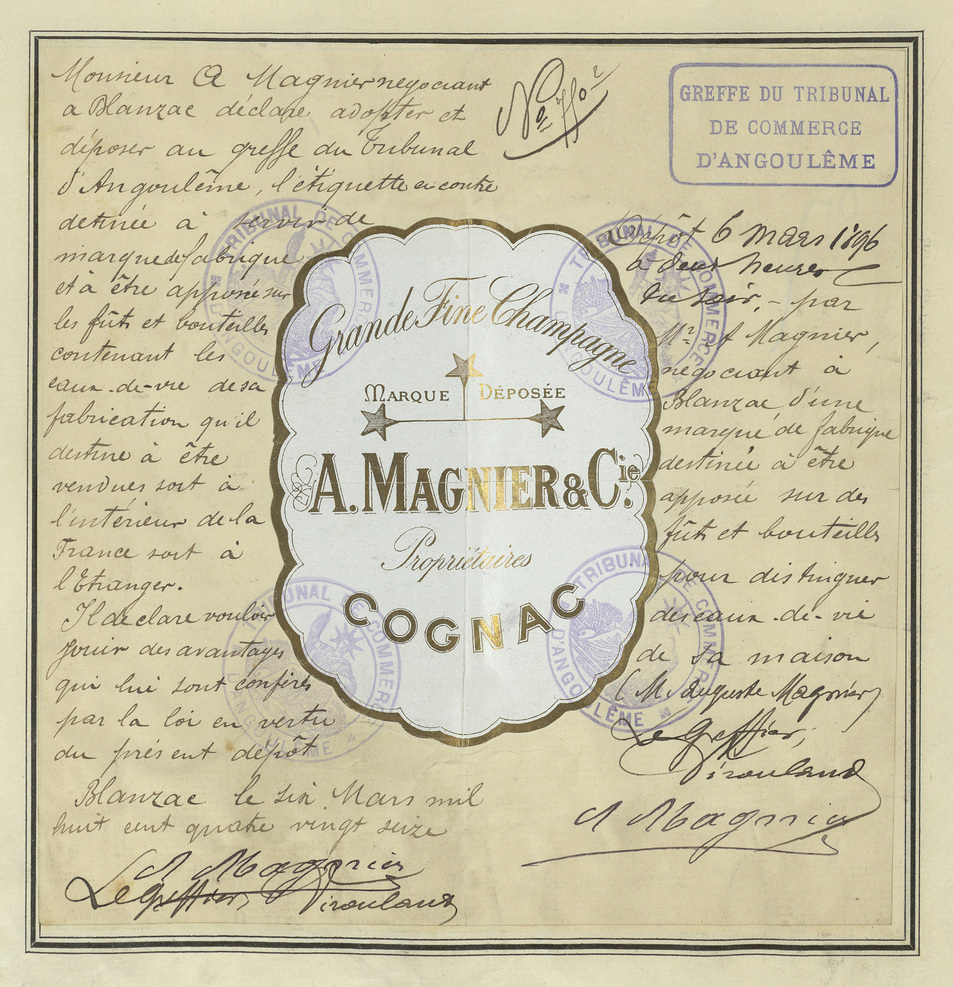 Monsieur A Magnier negociant
a Blanzac déclare adopter et
déposer au greffe du Tribunal
d'Angoulême, l'étiquette ci contre
detinée à servir de
marque de fabrique
et à être apposée sur
les fûts et bouteilles
contenant les
eaux-de-vie de sa
fabrication qu'il
destine à être
vendues soit à
l'intérieur de la
France soit à
l'Etranger.
Il declare vouloir
jouir des avantages
qui lui sont conférés
par la loi en vertu
du présent dépôt
Blanzac le six Mars mil
huit cent quatre vingt seize
A Magnier
Le Greffier,
No
GREFFE DU TRIBUNAL
DE COMMERCE
D'ANGOULÊME
Grande Fine Champagne
MARQUE DÉPOSÉE
A. MAGNIER & Cie.
Propriétaires
COGNAC
Dépôt 6 Mars 1896
à deux heures
du soir - par
Mr. A Magnier,
négociant à
Blanzac d'une
marque de fabrique
destinée à être
apposée sur des
fûts et bouteilles
pour distinguer
des eaux-de-vie
de sa maison
(M. Auguste Magnier)
Le Greffier,
A Magnier
TRIBUNAL DE COMMERCE
D'ANGOULÊME
TRIBUNAL DE COMMERCE
D'ANGOULÊME
TRIBUNAL DE COMMERCE
D'ANGOULÊME
TRIBUNAL DE COMMERCE
D'ANGOULÊME